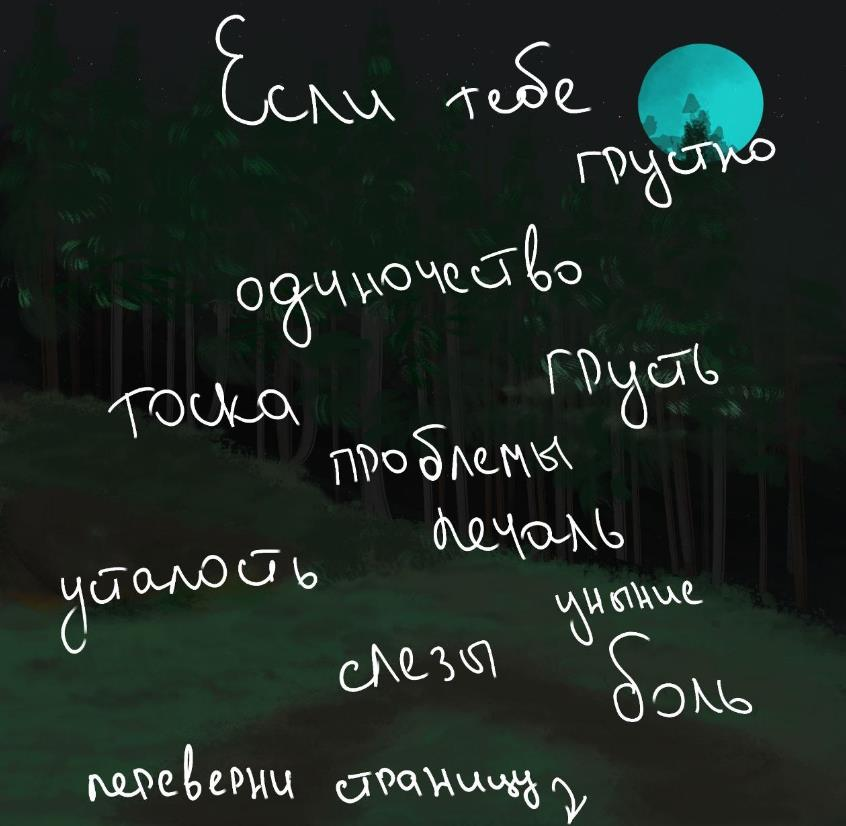 Если тебе
грустно
одиночество
грусть
тоска
проблемы
печаль
усталость
уныние
слезы
боль
переверни страницу